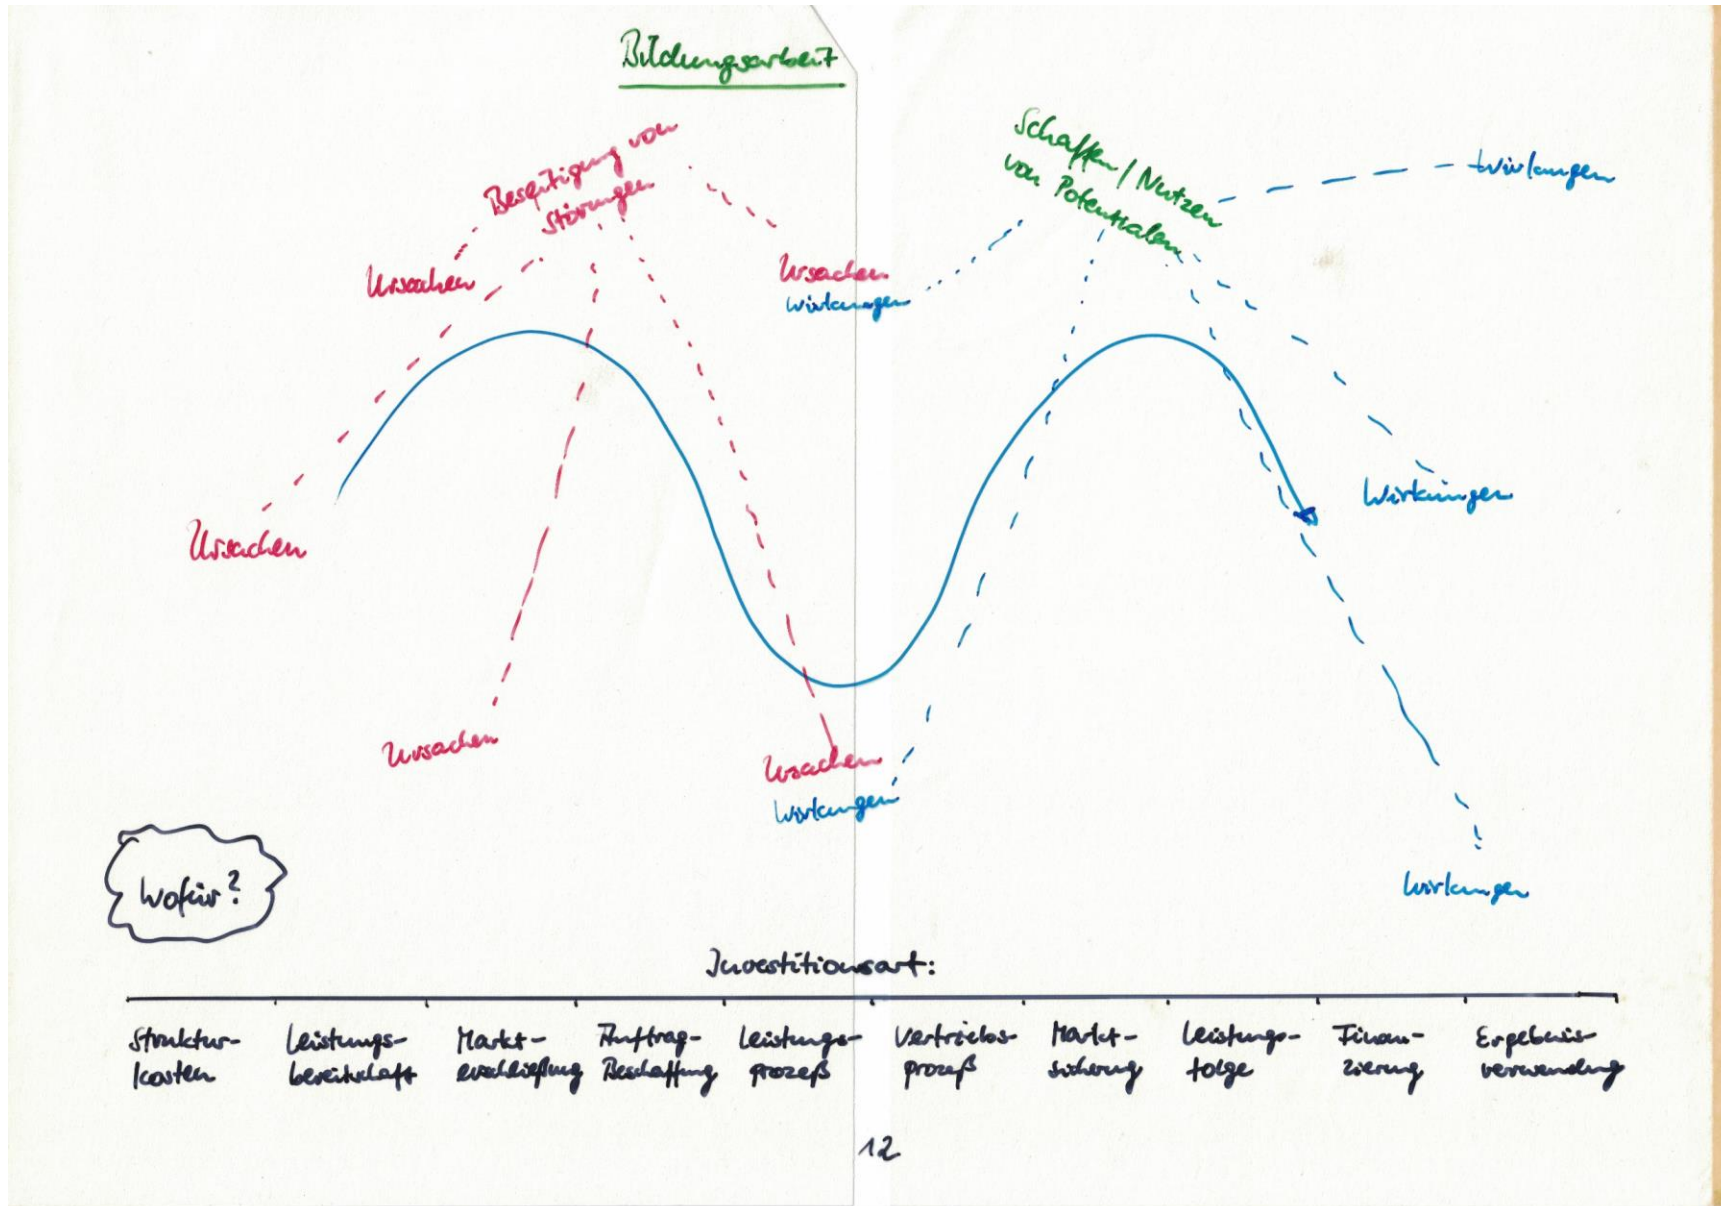 Bildungsarbeit
Beseitigung von
Störungen
Schaffen / Nutzen
von Potentialen
Wirkungen
Ursachen
Ursachen
Wirkungen
Ursachen
Wirkungen
Ursachen
Ursachen
Wirkungen
Wirkungen
Wofür?
Investitionsart:
Struktur-
kosten
Leistungs-
bereitschaft
Markt-
erschließung
Auftrag-
Beschaffung
Leistungs-
prozeß
Vertriebs-
prozeß
Markt-
sicherung
Leistungs-
folge
Finan-
zierung
Ergebnis-
verwendung
12